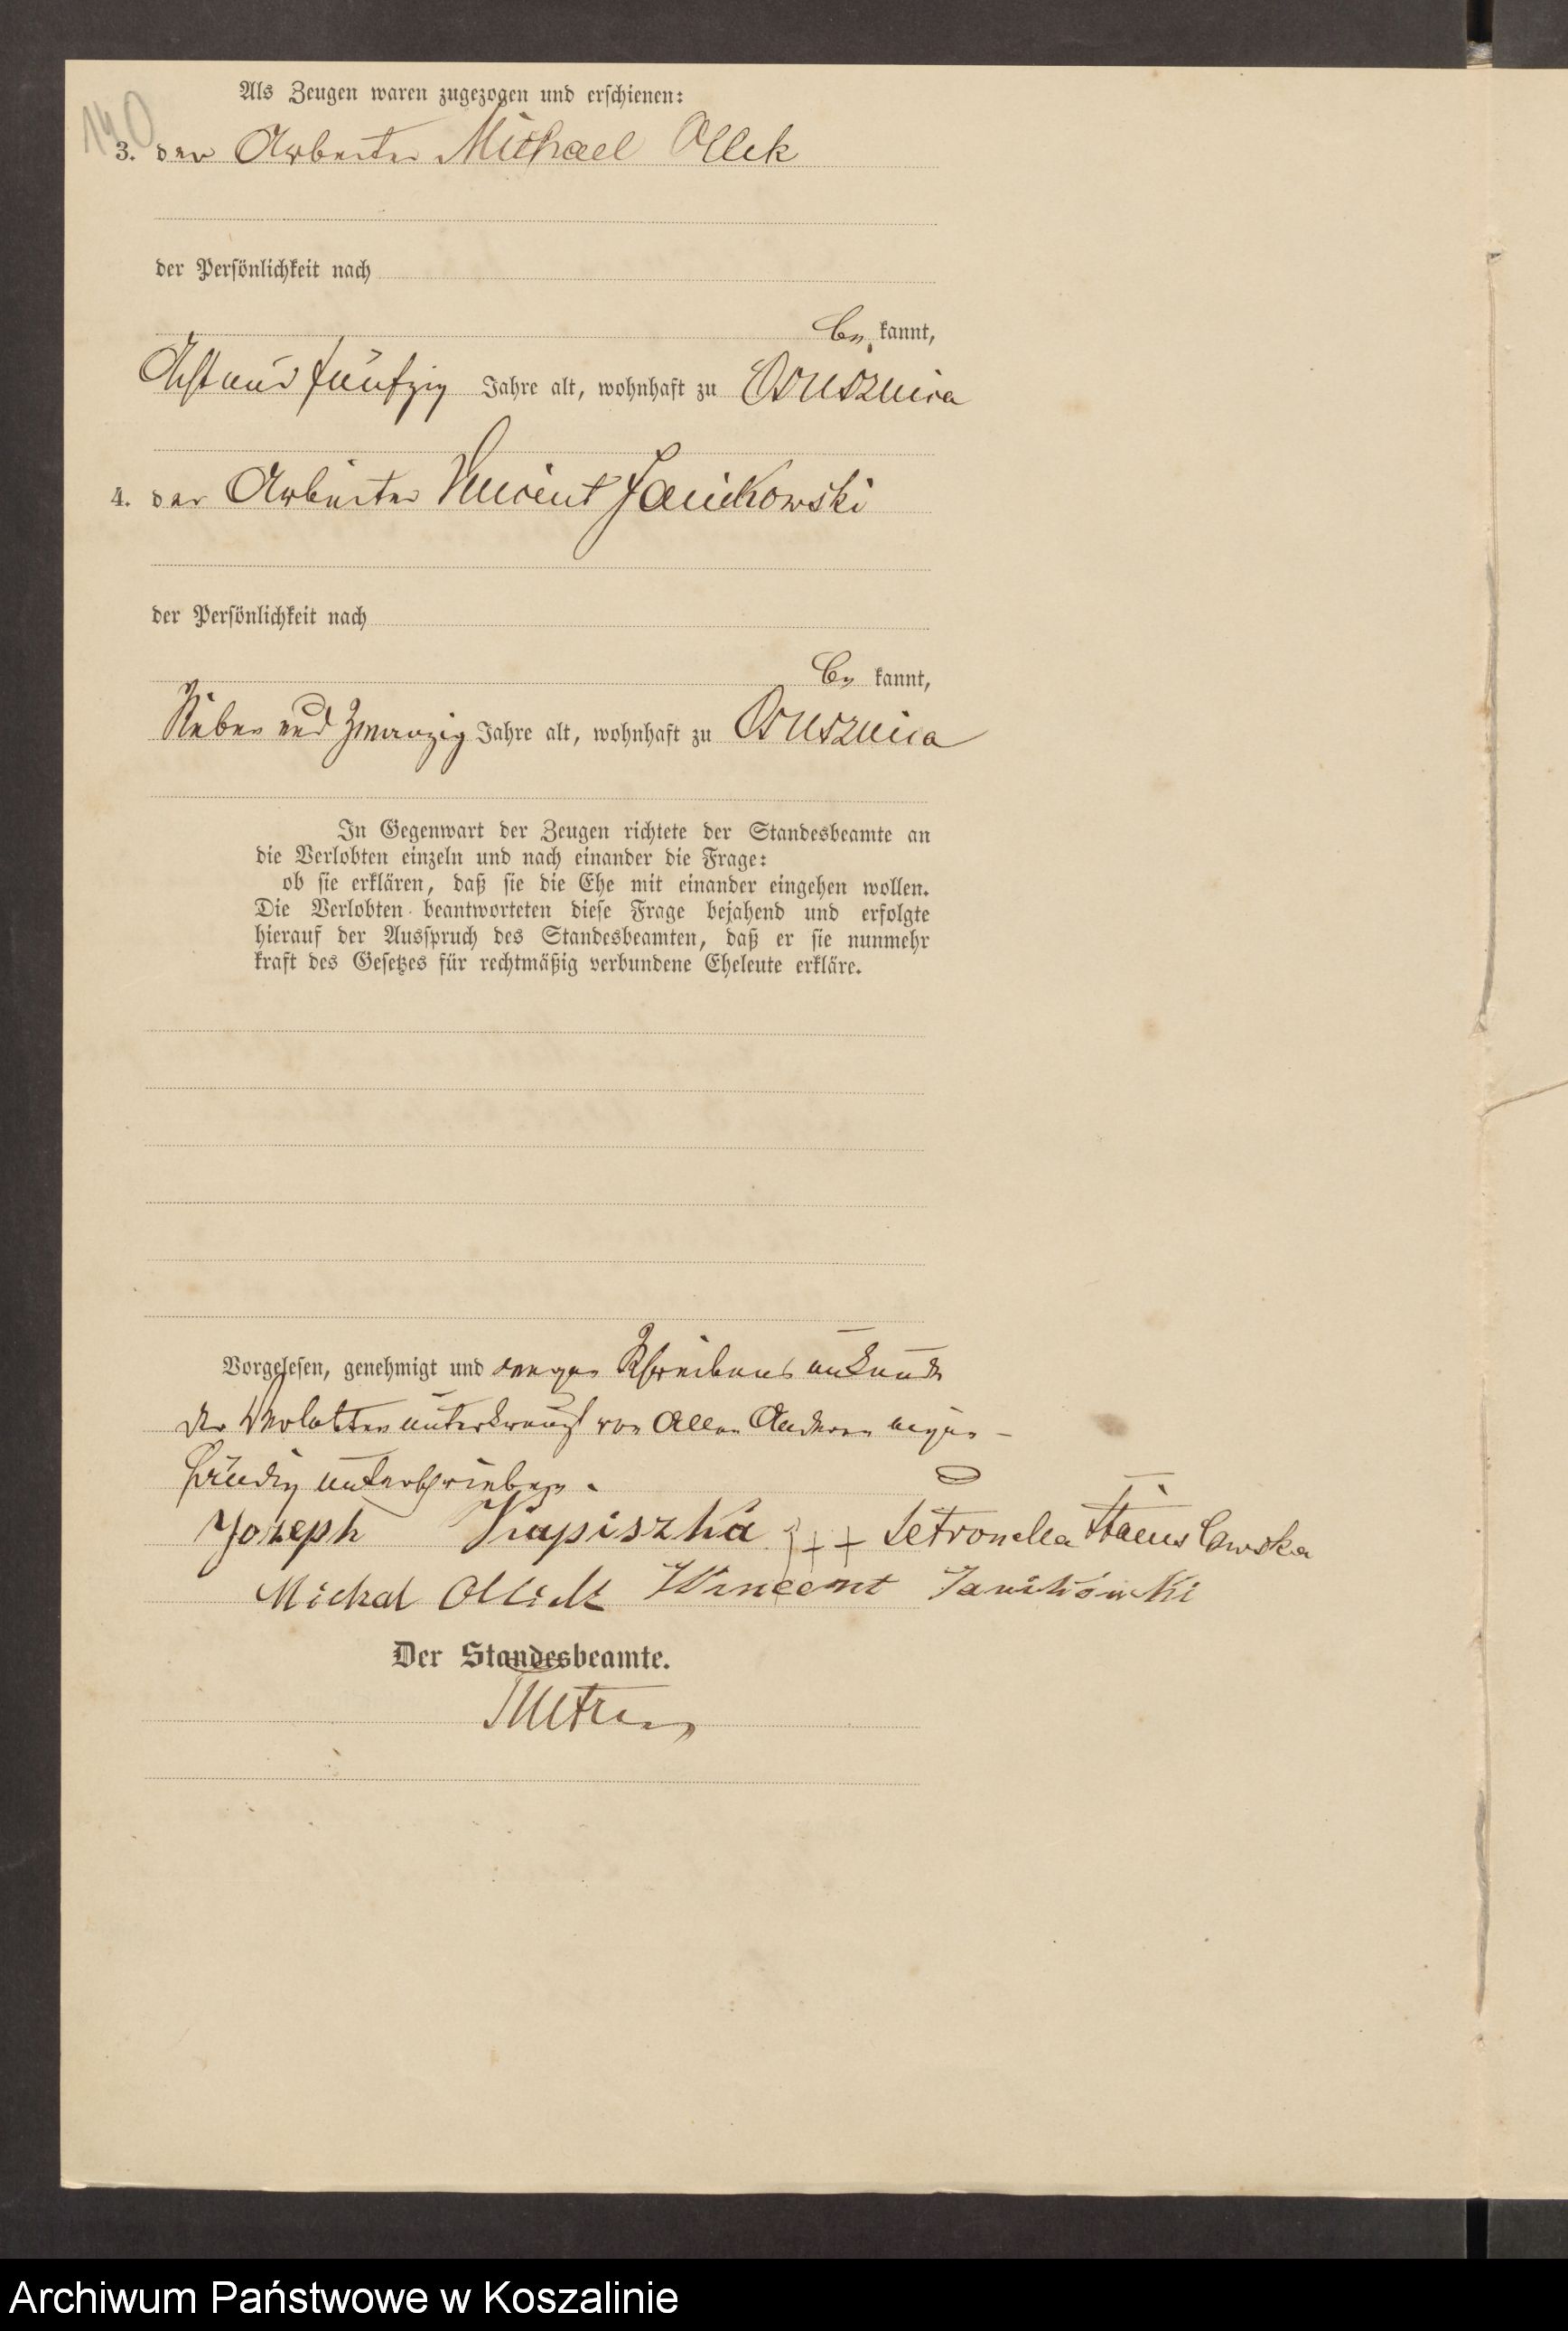 140
Als Zeugen waren zugezogen und erschienen:
3. der Arbeiter Michael Ollek
der Persönlichkeit nach
be kannt,
Acht und fünfzig Jahre alt, wohnhaft zu Ossusznica
4. der Arbeiter Vincent Janikowski
der Persönlichkeit nach
be kannt,
Sieben und zwanzig Jahre alt, wohnhaft zu Ossusznica
In Gegenwart der Zeugen richtete der Standesbeamte an
die Verlobten einzeln und nach einander die Frage:
ob sie erklären, daß sie die Ehe mit einander eingehen wollen.
Die Verlobten beantworteten diese Frage bejahend und erfolgte
hierauf der Ausspruch des Standesbeamten, daß er sie nunmehr
kraft des Gesetzes für rechtmäßig verbundene Eheleute erkläre.
Vorgelesen, genehmigt und wegen Schreibens unkunde
der Verlobten unterkreuzt von Allen Anderen eigen-
händig unterschrieben.
Jozeph Kapiszka +++ Petronella Stanislawska
Michal Ollick Wincent Janikowski
Der Standesbeamte.
Archiwum Państwowe w Koszalinie